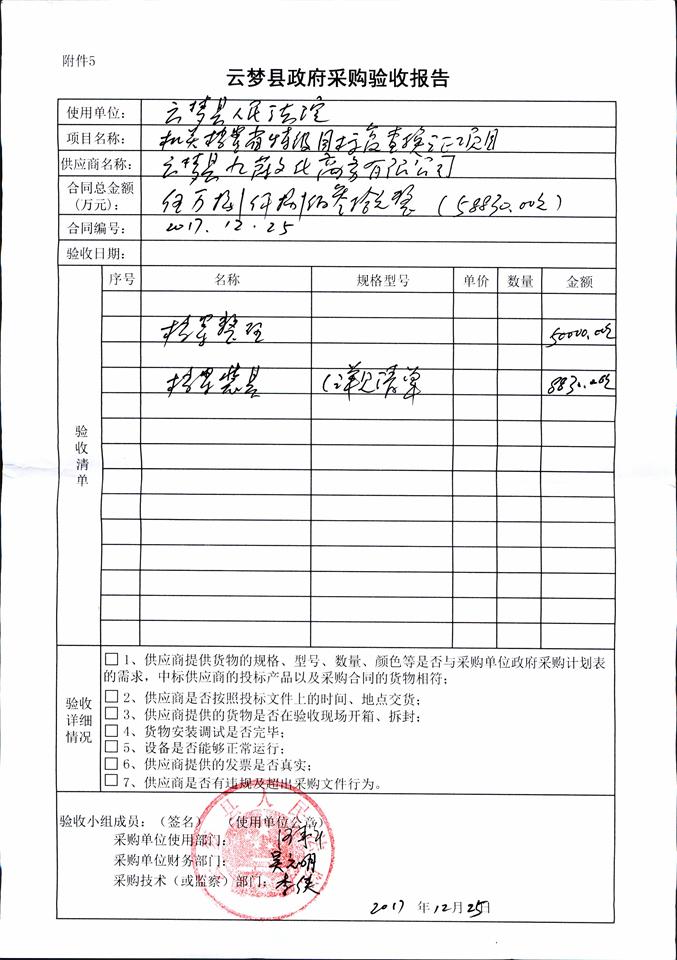 附件5
云梦县政府采购验收报告
使用单位: 云梦县人民法院
项目名称: 机关档案省特级目标复查换证汇项目
供应商名称: 云梦县九 文化商务有限公司
合同总金额(万元): 伍万捌仟捌佰叁拾元整 (58830.00元)
合同编号: 2017.12.25
验收日期:
序号 名称 规格型号 单价 数量 金额
档案整理 50000.00元
档案装具 (详见清单 8830.00元
验收清单
验收详细情况
□1、供应商提供货物的规格、型号、数量、颜色等是否与采购单位政府采购计划表
的需求,中标供应商的投标产品以及采购合同的货物相符;
□2、供应商是否按照投标文件上的时间、地点交货;
□3、供应商提供的货物是否在验收现场开箱、拆封;
□4、货物安装调试是否完毕;
□5、设备是否能够正常运行;
□6、供应商提供的发票是否真实;
□7、供应商是否有违规及超出采购文件行为。
验收小组成员:(签名) (使用单位公章)
采购单位使用部门:
采购单位财务部门: 吴元明
采购技术(或监察)部门: 李侠
2017 年12月25日